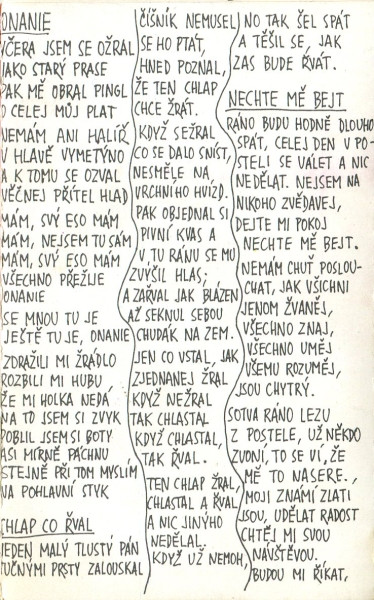 ONANIE
VČERA JSEM SE OŽRAL
JAKO STARÝ PRASE
PAK MĚ OBRAL PINGL
O CELEJ MŮJ PLAT
NEMÁM ANI HALÍŘ
V HLAVĚ VYMETÝNO
A K TOMU SE OZVAL
VĚČNEJ PŘÍTEL HLAD
MÁM, SVÝ ESO MÁM
MÁM, NEJSEM TU SÁM
MÁM, SVÝ ESO MÁM
VŠECHNO PŘEŽIJE
ONANIE
SE MNOU TU JE
JEŠTĚ TU JE, ONANIE
ZDRAŽILI MI ŽRÁDLO
ROZBILI MI HUBU,
ŽE MI HOLKA NEDÁ
NA TO JSEM SI ZVYK
POBLIL JSEM SI BOTY
ASI MÍRNĚ PÁCHNU
STEJNĚ PŘI TOM MYSLÍM
NA POHLAVNÍ STYK
CHLAP CO ŘVAL
JEDEN MALÝ TLUSTÝ PÁN
TUČNÝMI PRSTY ZALOUSKAL
ČÍŠNÍK NEMUSEL
SE HO PTÁT,
HNED POZNAL,
ŽE TEN CHLAP
CHCE ŽRÁT.
KDYŽ SEŽRAL
CO SE DALO SNÍST,
NESMĚLE NA
VRCHNIHO HVIZD.
PAK OBJEDNAL SI
PIVNÍ KVAS A
V TU RÁNU SE MU
ZVÝŠIL HLAS;
A ZAŘVAL JAK BLÁZEN
AŽ SEKNUL SEBOU
CHUDÁK NA ZEM.
JEN CO VSTAL, JAK
ZJEDNANEJ ŽRAL
KDYŽ NEŽRAL
TAK CHLASTAL
KDYŽ CHLASTAL,
TAK ŘVAL.
TEN CHLAP ŽRAL,
CHLASTAL A ŘVAL
A NIC JINÝHO
NEDĚLAL.
KDYŽ UŽ NEMOH,
NO TAK ŠEL SPÁT
A TĚŠIL SE, JAK
ZAS BUDE ŘVÁT.
NECHTE MĚ BEJT
RÁNO BUDU HODNĚ DLOUHO
SPÁT, CELEJ DEN V PO-
STELI SE VÁLET A NIC
NEDĚLAT. NEJSEM NA
NIKOHO ZVĚDAVEJ,
DEJTE MI POKOJ
NECHTE MĚ BEJT.
NEMÁM CHUŤ POSLOU-
CHAT, JAK VŠICHNI
JENOM ŽVANĚJ,
VŠECHNO ZNAJ,
VŠECHNO UMĚJ
VŠEMU ROZUMĚJ,
JSOU CHYTRÝ.
SOTVA RÁNO LEZU
Z POSTELE, UŽ NĚKDO
ZVONI, TO SE VÍ, ŽE
MĚ TO NASERE,
MOJI ZNÁMÍ ZLATÍ
JSOU, UDĚLAT RADOST
CHTĚJ MI SVOU
NÁVŠTĚVOU.
BUDOU MI ŘÍKAT,